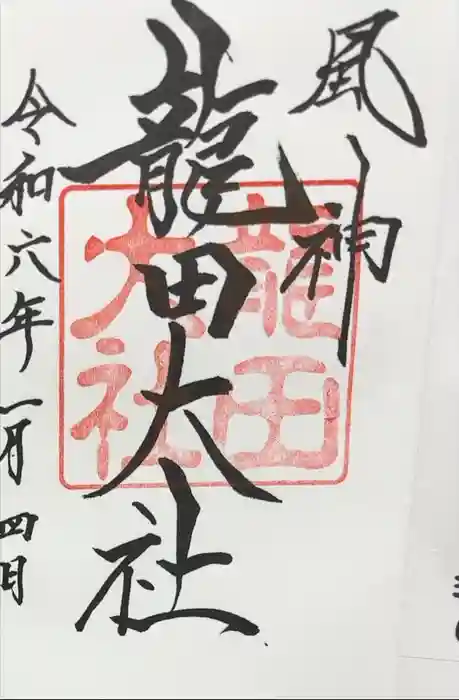 風神
龍田大社
龍田
大社
令和六年一月四日